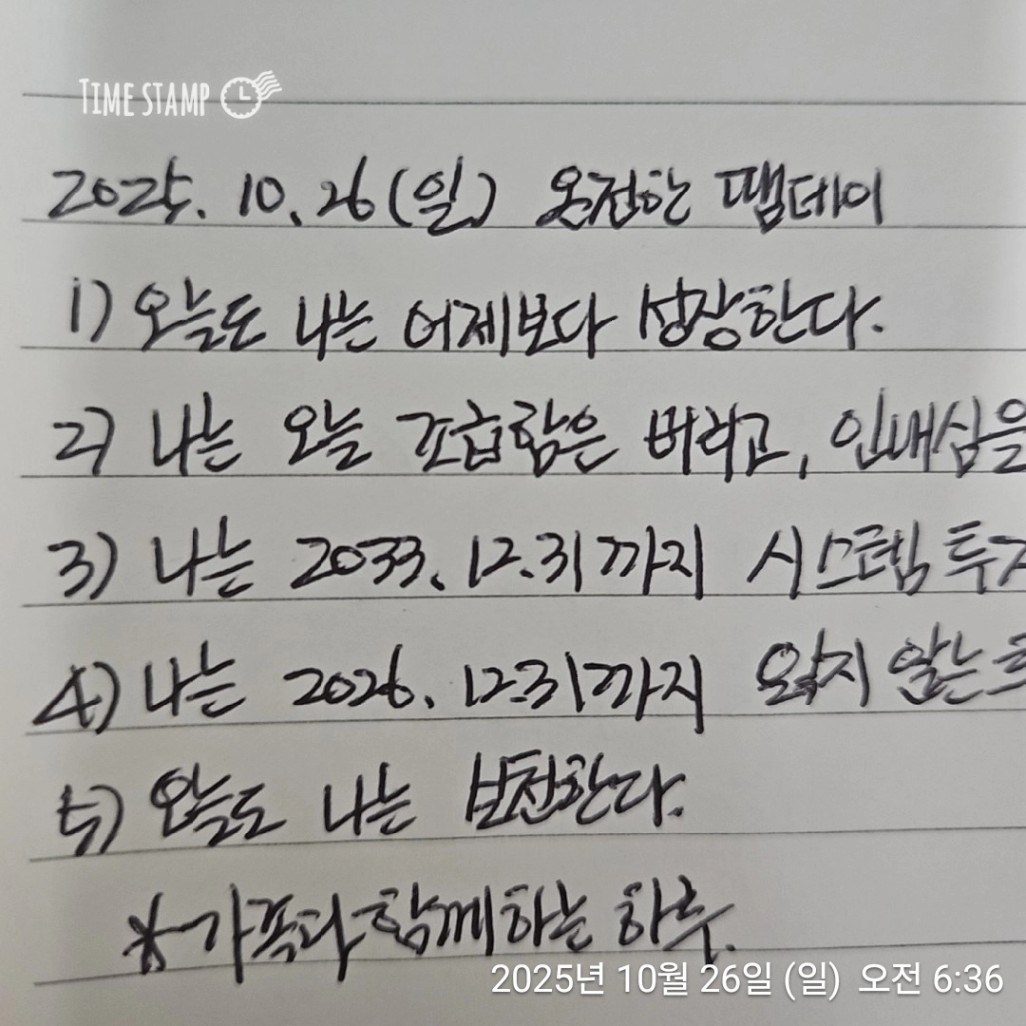 TIME STAMP
2025. 10. 26 (일) 온전한 땜데이
1) 오늘도 나는 어제보다 성장한다.
2) 나는 오늘 조급함은 버리고, 인내심을
3) 나는 2033. 12.31까지 시스템 투
4) 나는 2026. 12.31까지 않는
5) 오늘도 나는 보천한다.
* 가족과 함께하는 하루.
2025년 10월 26일 (일) 오전 6:36